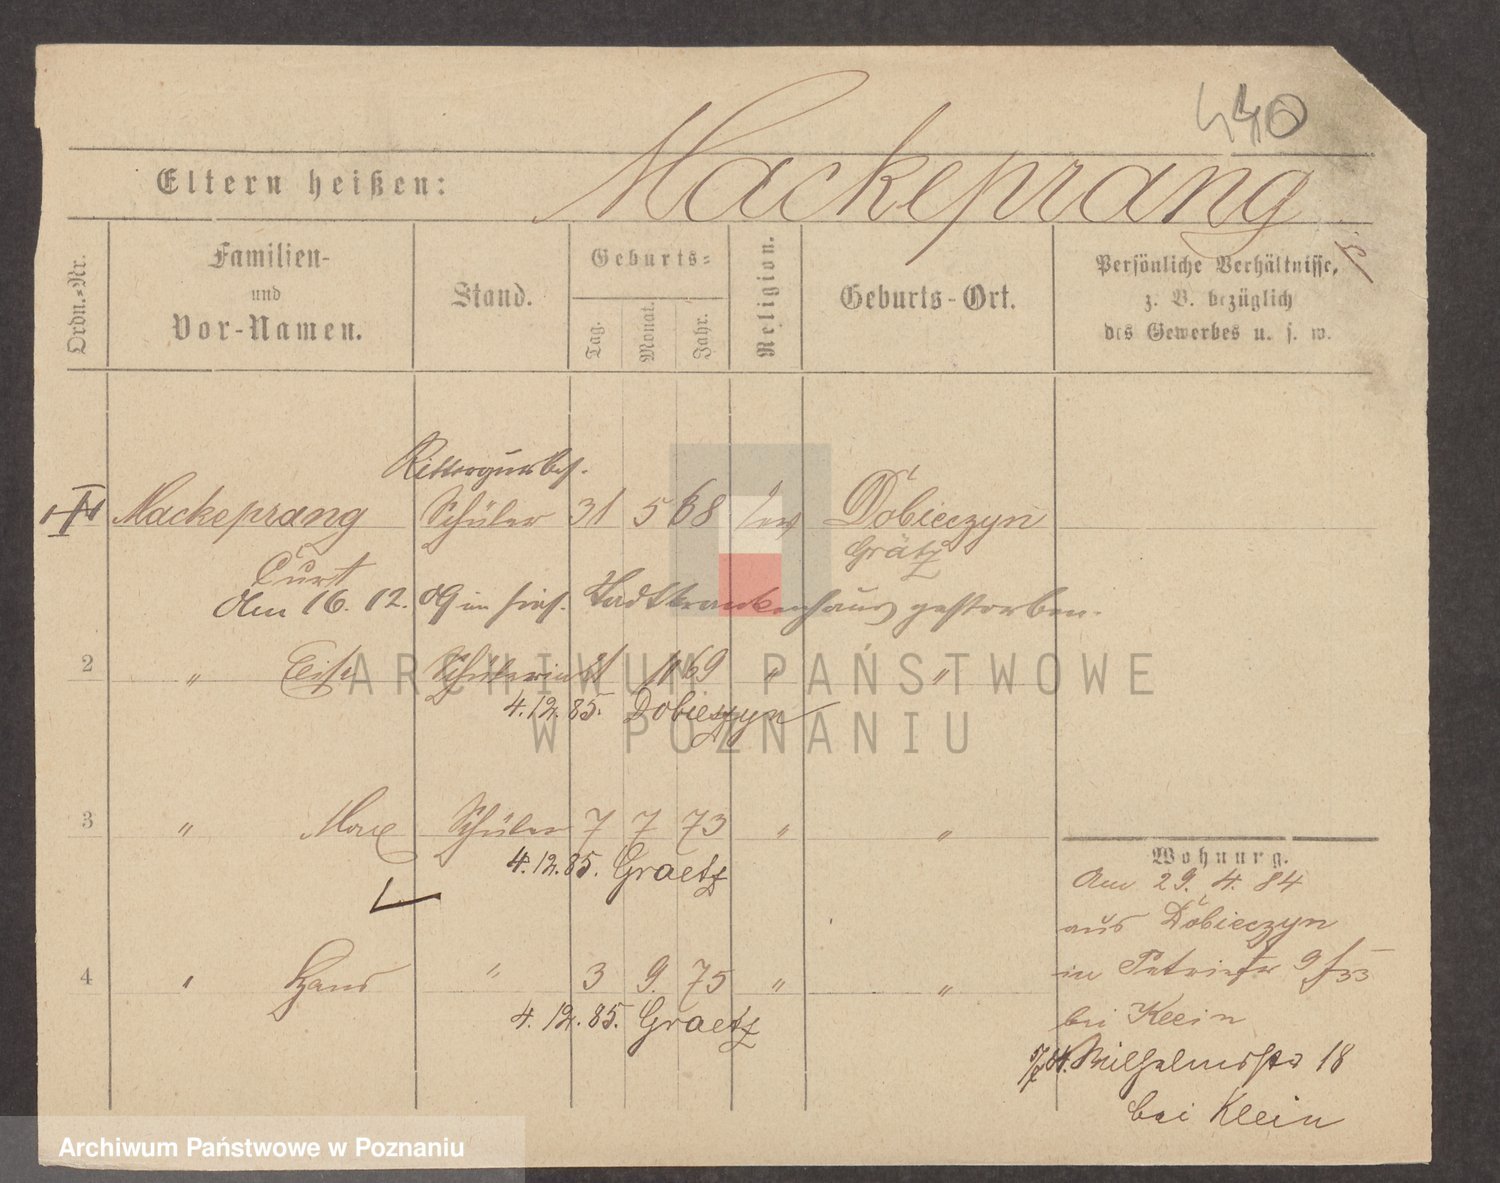 440
Eltern heißen: Mackeprang
Ordn.-Nr.
Familien-
und
Vor-Namen.
Stand.
Geburts-
Tag.
Monat.
Jahr.
Religion.
Geburts-Ort.
Persönliche Verhältnisse,
z. B. bezüglich
des Gewerbes u. s. w.
Ritterguts bes.
1 Mackeprang Schüler 31 5 68 ev Dobieczyn
Grätz
Curt
Am 16. 12. 09 im hies. Stadtkrankenhaus gestorben.
2 " Elise Schülerin 11 69 " "
4.12.85. Dobieszyn
3 " Max Schüler 7 7 73 " "
4.12.85. Graetz
4 " Hans " 3 9. 75 " "
4.12.85. Graetz
Wohnung.
Am 29. 4. 84
aus Dobieczyn
in Petristr 9/33
bei Klein
Wilhelmstr 18
bei Klein
ARCHIWUM PAŃSTWOWE
W POZNANIU
Archiwum Państwowe w Poznaniu